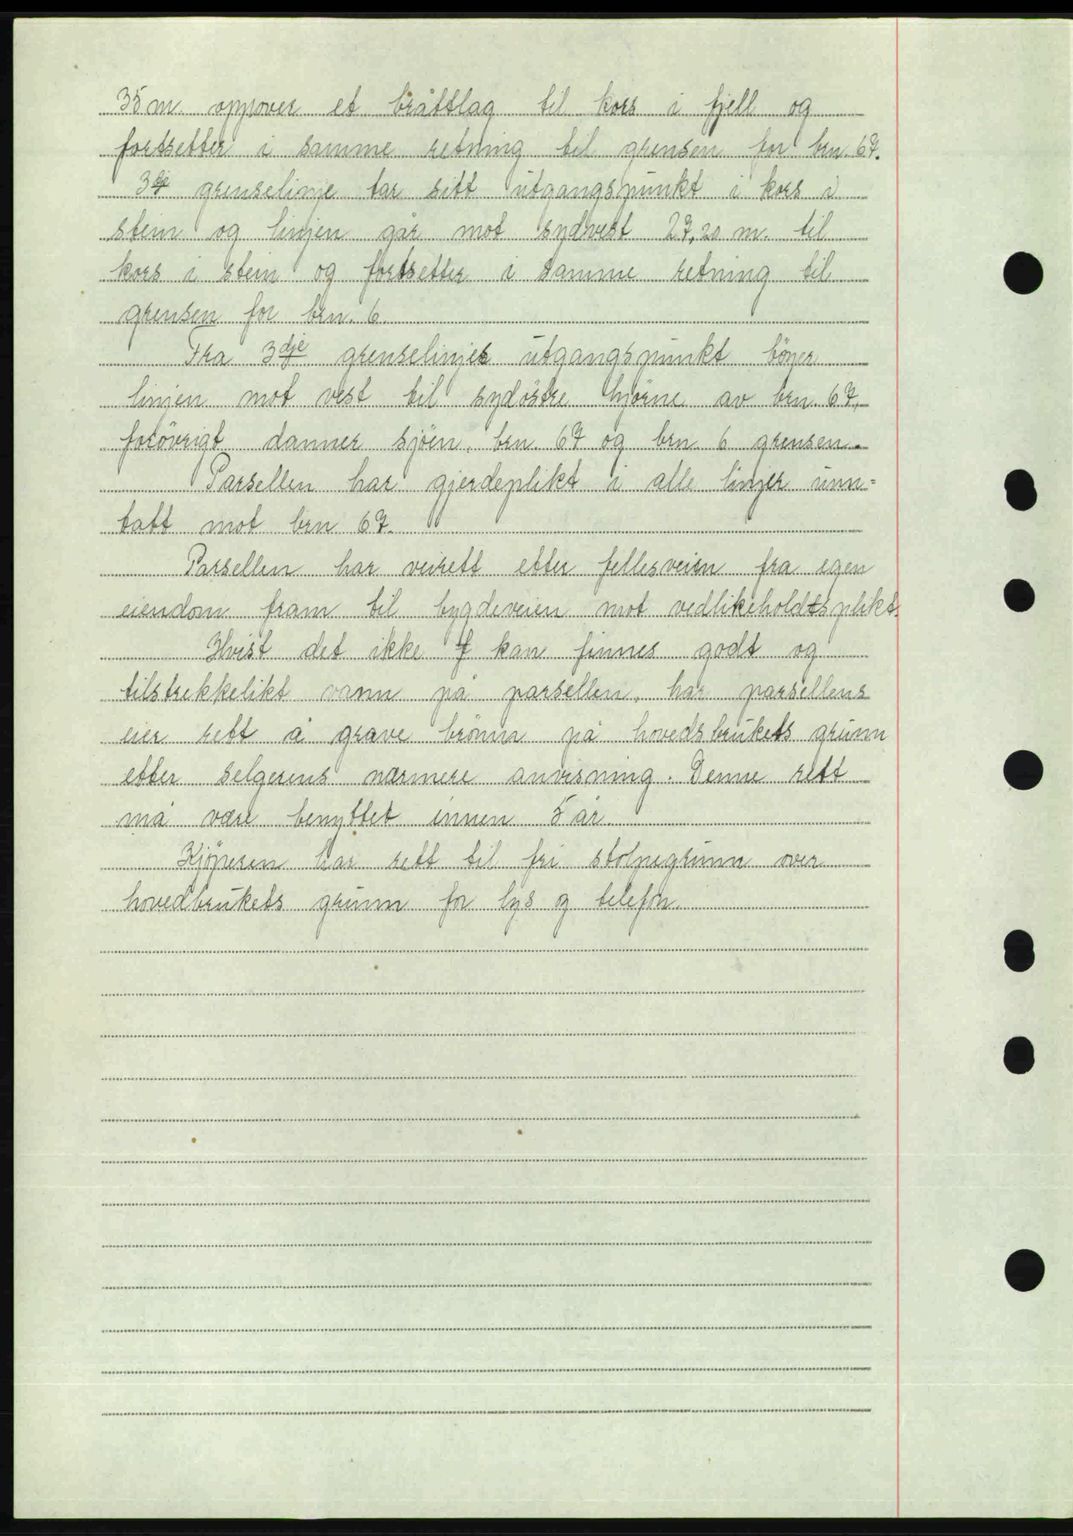 35 m. oppover et bråttlag til kors i fjell og
fortsetter i samme retning til grensen for brn. 67.
3dje grenselinje tar sitt utgangspunkt i kors i
stein og linjen går mot sydvest 27,20 m. til
kors i stein og fortsetter i samme retning til
grensen for brn. 6.
Fra 3dje grenselinjes utgangspunkt böyer
linjen mot vest til sydöstre hjörne av brn. 67,
forövrigt danner sjöen, brn. 67 og brn. 6 grensen.
Parsellen har gjerdeplikt i alle linjer unn=
tatt mot brn 67.
Parsellen har veirett etter fellesveien fra egen
eiendom fram til bygdeveien mot vedlikeholdtsplikt.
Hvist det ikke f kan finnes godt og
tilstrekkelikt vann på parsellen, har parsellens
eier rett å grave brönn på hovedsbrukets grunn
etter selgerens nærmere anvisning. Denne rett
må være benyttet innen 5 år.
Kjöperen har rett til fri stolpegrunn over
hovedbrukets grunn for lys og telefon.